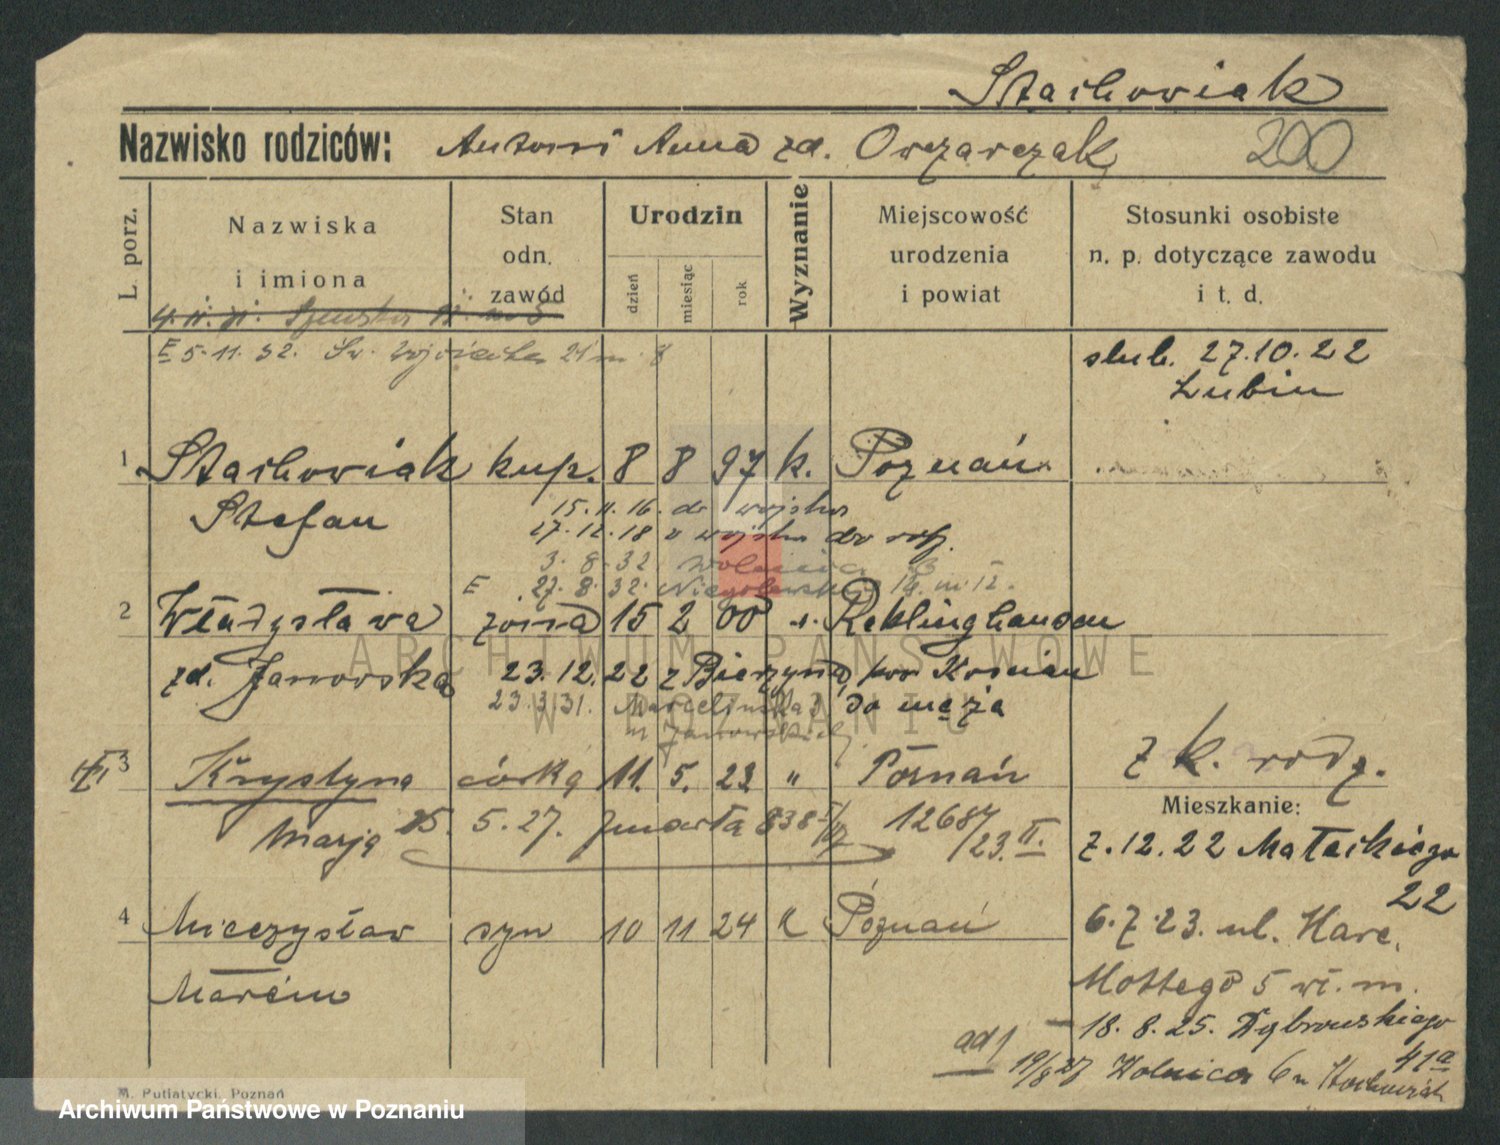 Stachowiak
Nazwisko rodziców: Antoni Anna zd. Owczarczak 200
L. porz. Nazwiska i imiona Stan odn. zawód Urodzin dzień miesiąc rok Wyznanie Miejscowość urodzenia i powiat Stosunki osobiste n. p. dotyczące zawodu i t. d.
E 5.11.32. Św. Wojciecha 21 m. 8
ślub. 27.10.22
Lubin
1 Stachowiak kup. 8 8 97 k. Poznań
Stefan 15.11.16. do wojska
17.12.18 z wojska do
3.8.32. Wolnica
E 27.8.32. Niegolewskich
2 Władysława żona 15 2 00 Reklinghausen
zd. Jaworska 23.12.22 z Bierzyna, pow Kościan
23.3.31. do męża
z k. rodz.
3 Krystyna córka 11. 5. 23 " Poznań
Mieszkanie:
Marja 25. 5. 27. zmarła 838 12687/23. II.
7.12.22 Małeckiego
22
4 Mieczysław syn 10 11 24 k Poznań
6.7.23. ul. Marc.
Marcin
Mottego 5 wł. m.
18.8.25. Dąbrowskiego
41a
ad 1 19/8 27 Wolnica 6 u Stachowiak
M. Putiatycki, Poznań
ARCHIWUM PAŃSTWOWE
W POZNANIU
Archiwum Państwowe w Poznaniu